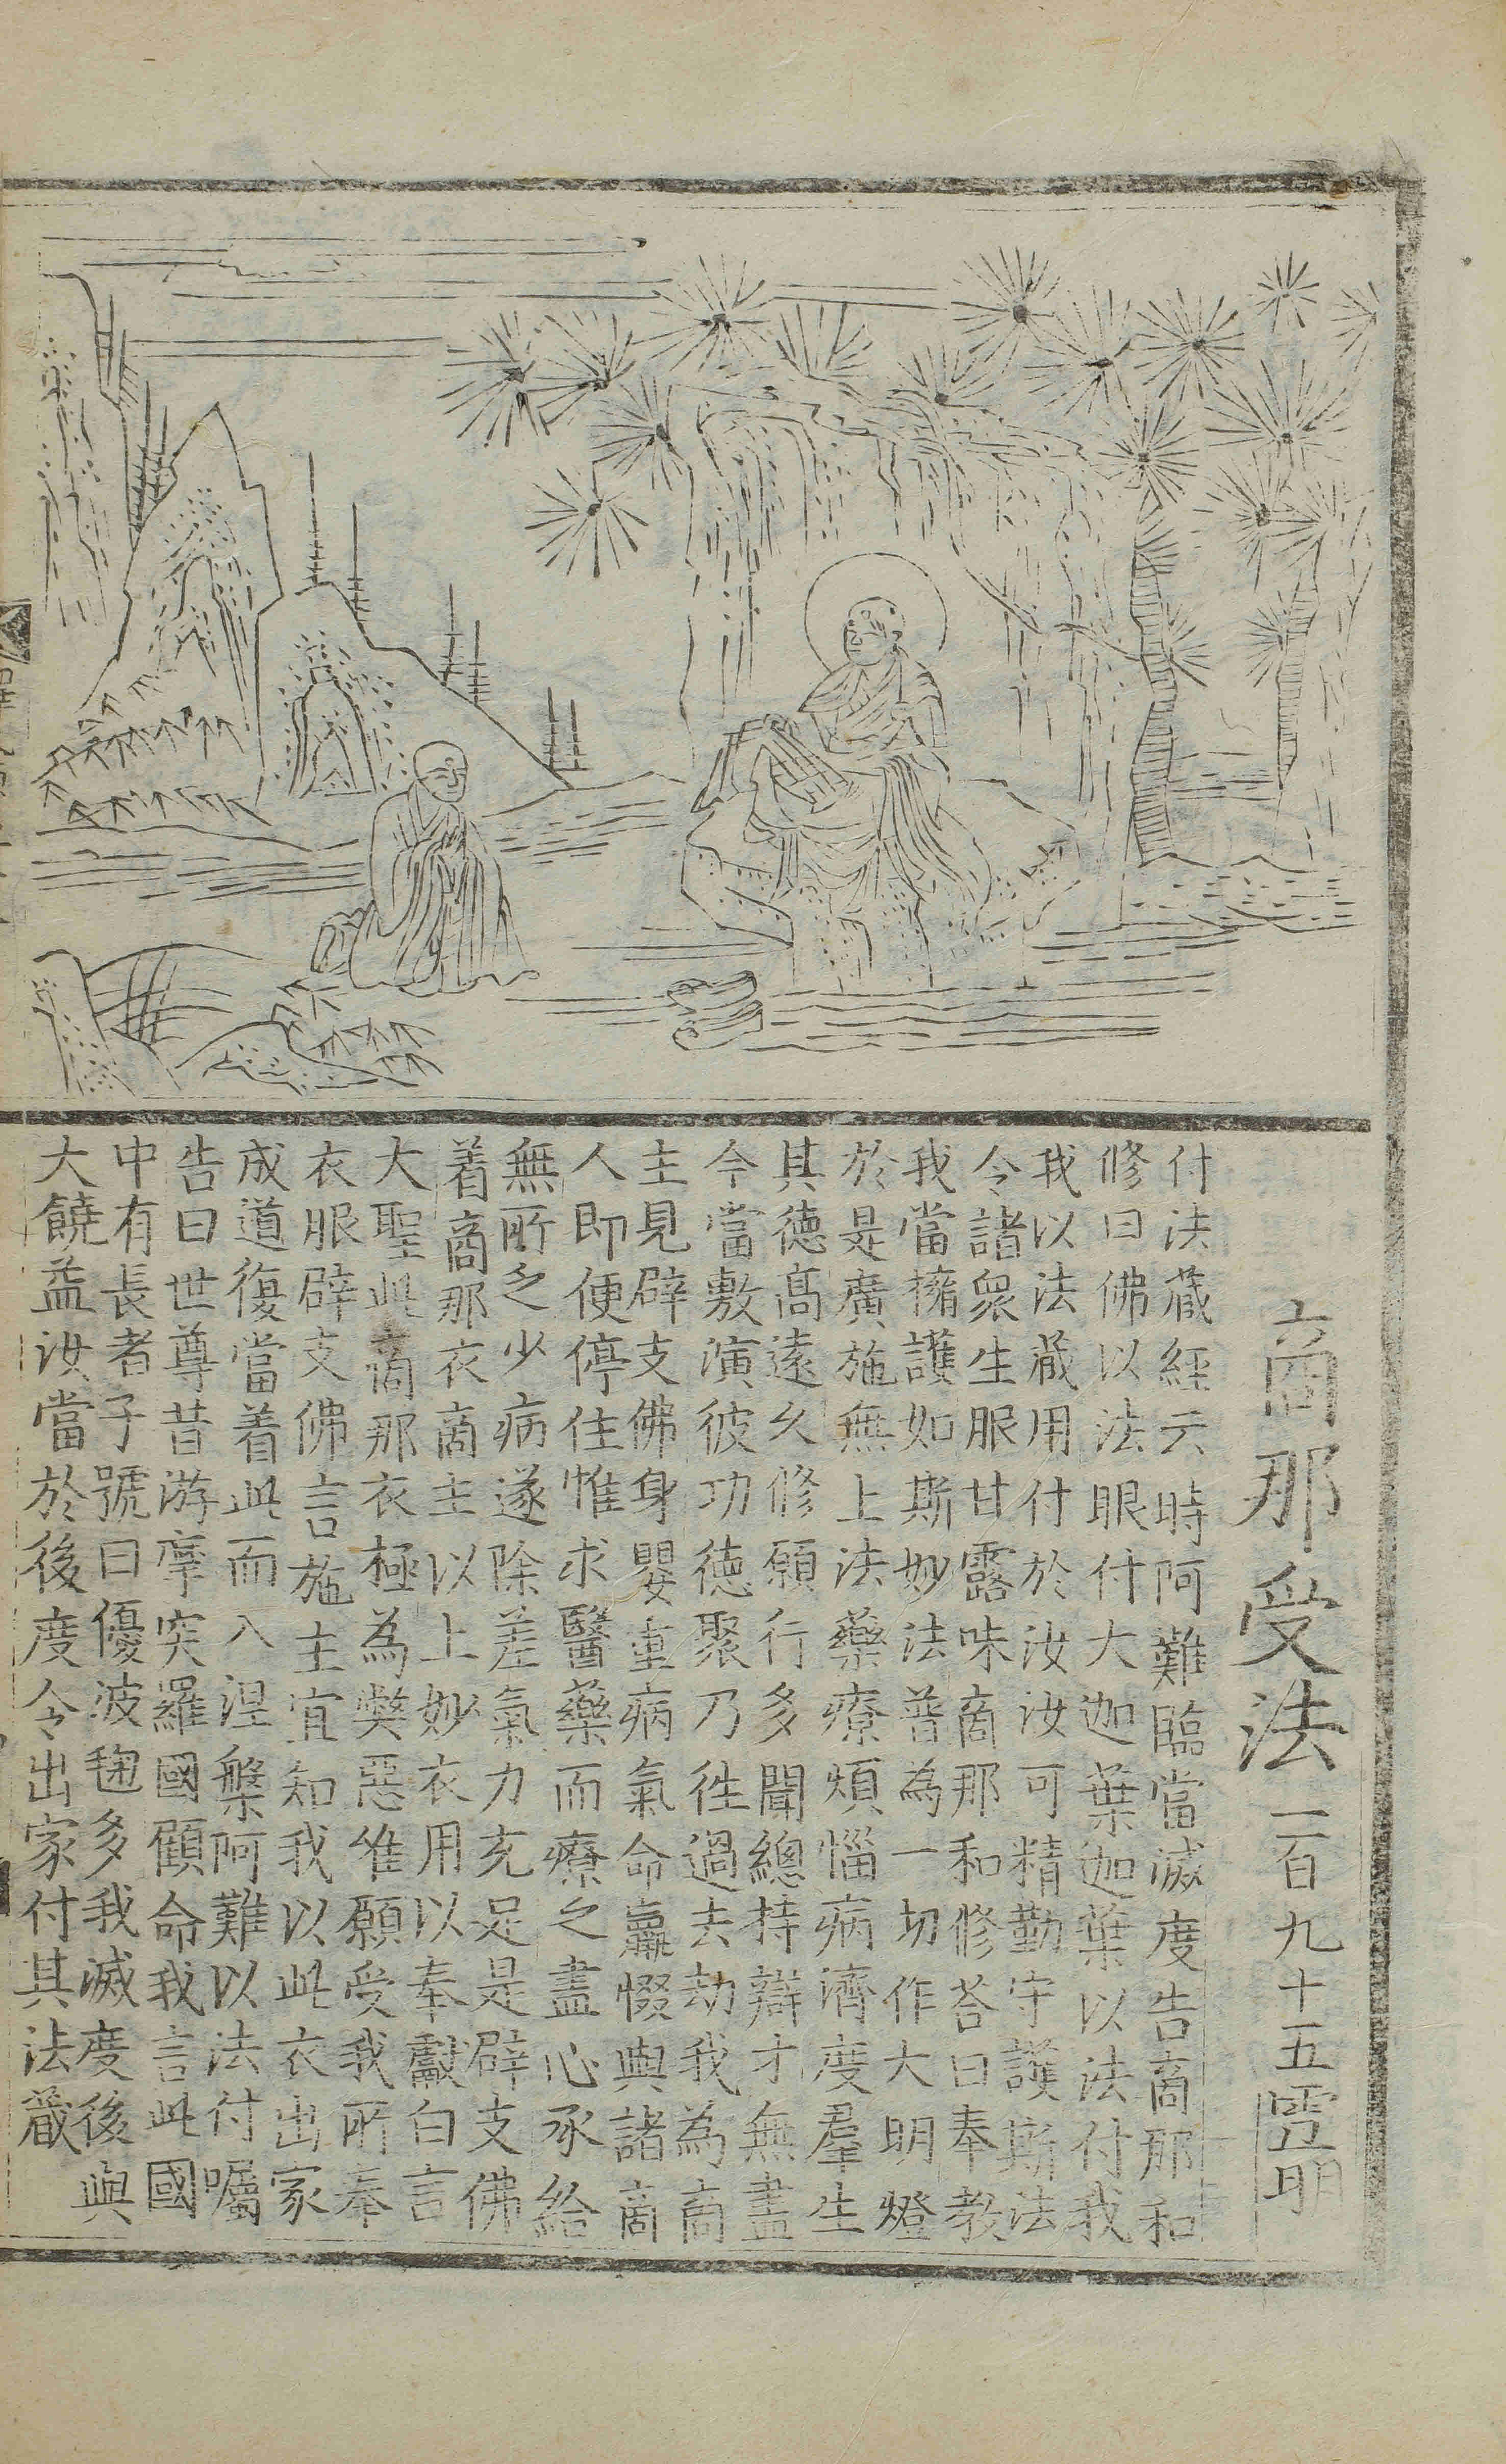 商那受法 一百九十五 雪明
付法藏經云時阿難臨當滅度告商那和
修曰佛以法眼付大迦葉迦葉以法付我
我以法藏用付於汝汝可精勤守護斯法
令諸衆生服甘露味商那和修荅曰奉教
我當擁護如斯妙法普為一切作大明燈
於是廣施無上法藥療煩惱病濟度羣生
其德髙遠久修願行多聞總持辯才無盡
今當敷演彼功德聚乃徃過去劫我為商
主見辟支佛身嬰重病氣命羸惙與諸商
人即便停住惟求醫藥而療之盡心承給
無所乏少病遂除差氣力充足是辟支佛
着商那衣商主以上妙衣用以奉獻白言
大聖此商那衣極為獘惡惟願受我所奉
衣服辟支佛言施主宜知我以此衣出家
成道復當着此而入涅槃阿難以法付囑
告曰世尊昔游摩突羅國顧命我言此國
中有長者子號曰優波毱多我滅度後與
大饒益汝當於後度令出家付其法藏